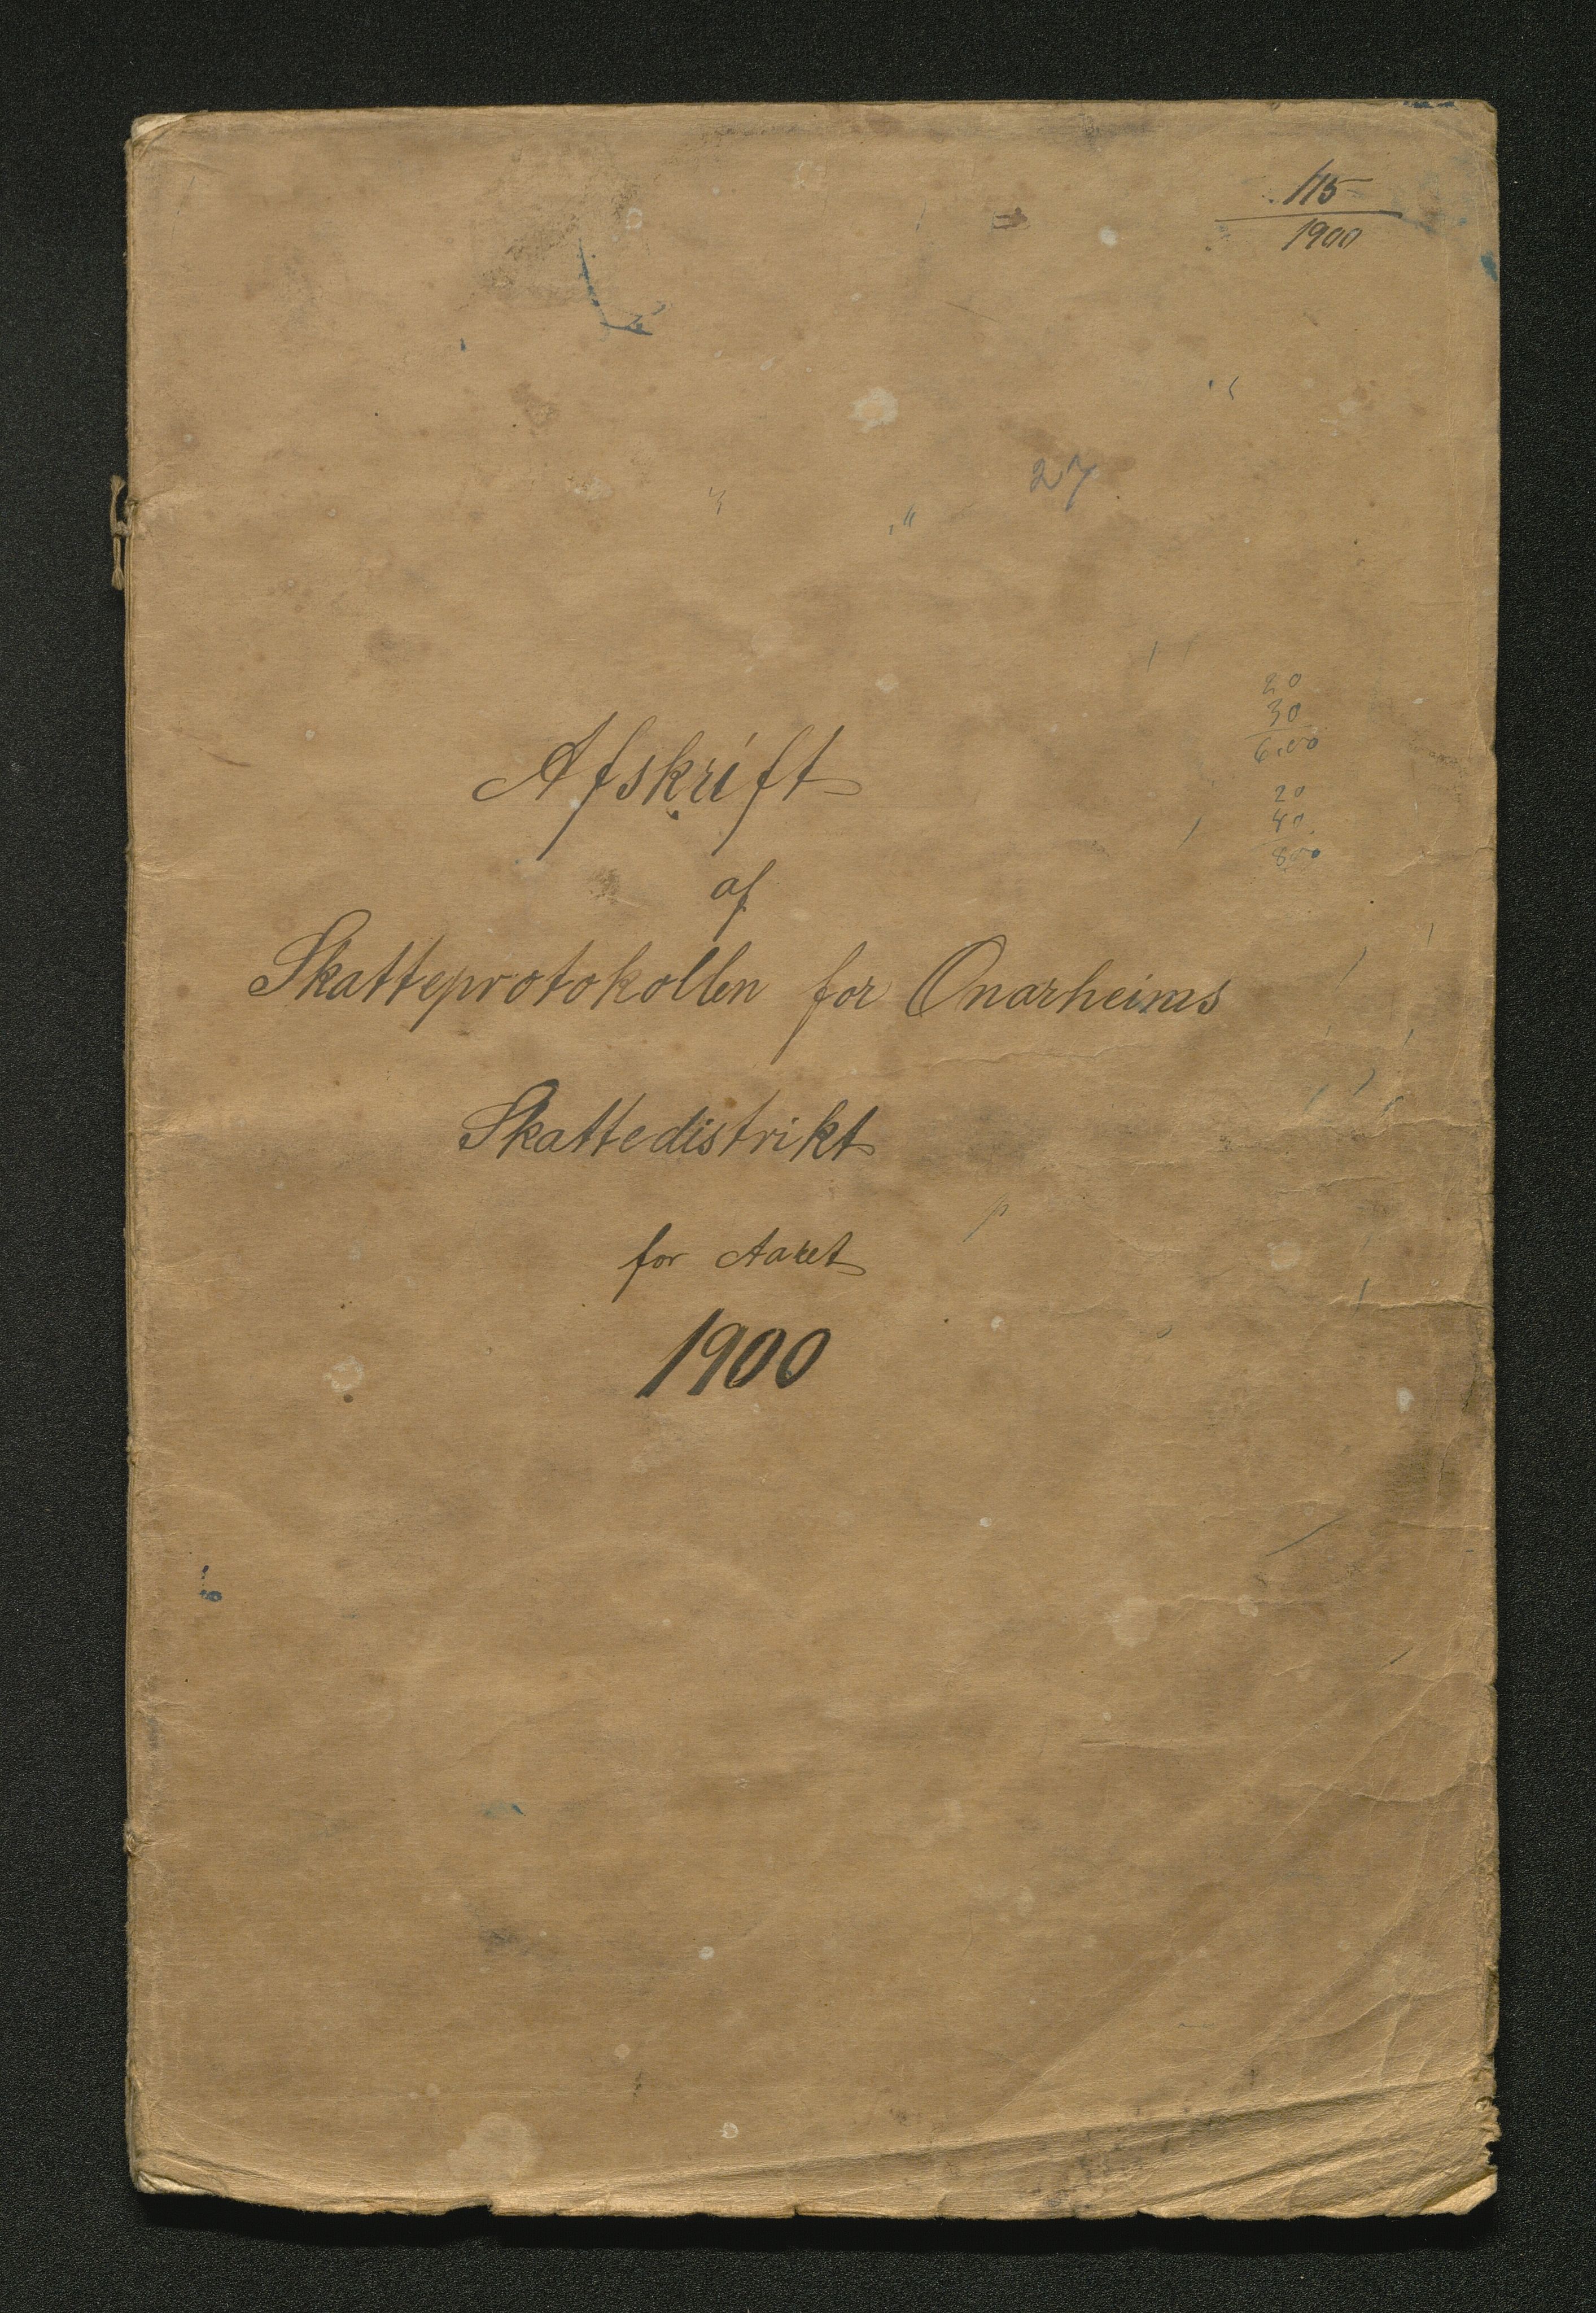 115
1900
27
20
30
6.00
20
40
800
Afskrift
af
Skatteprotokollen for Onarheims
Skattedistrikt
for Aaret
1900